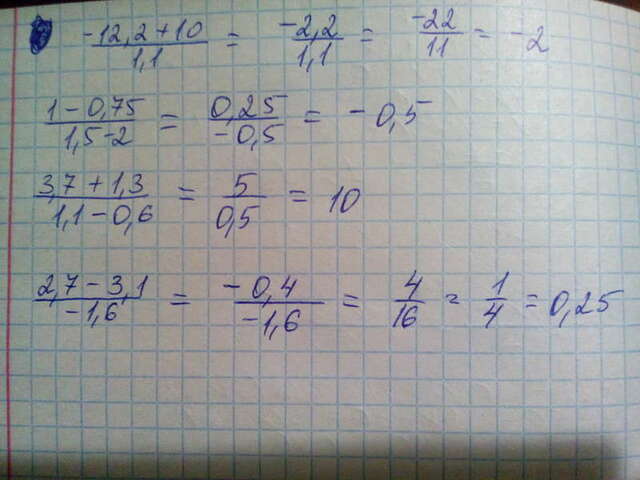 (-12,2+10)/1,1 = -2,2/1,1 = -22/11 = -2
(1-0,75)/(1,5-2) = 0,25/-0,5 = -0,5
(3,7+1,3)/(1,1-0,6) = 5/0,5 = 10
(2,7-3,1)/-1,6 = -0,4/-1,6 = 4/16 = 1/4 = 0,25